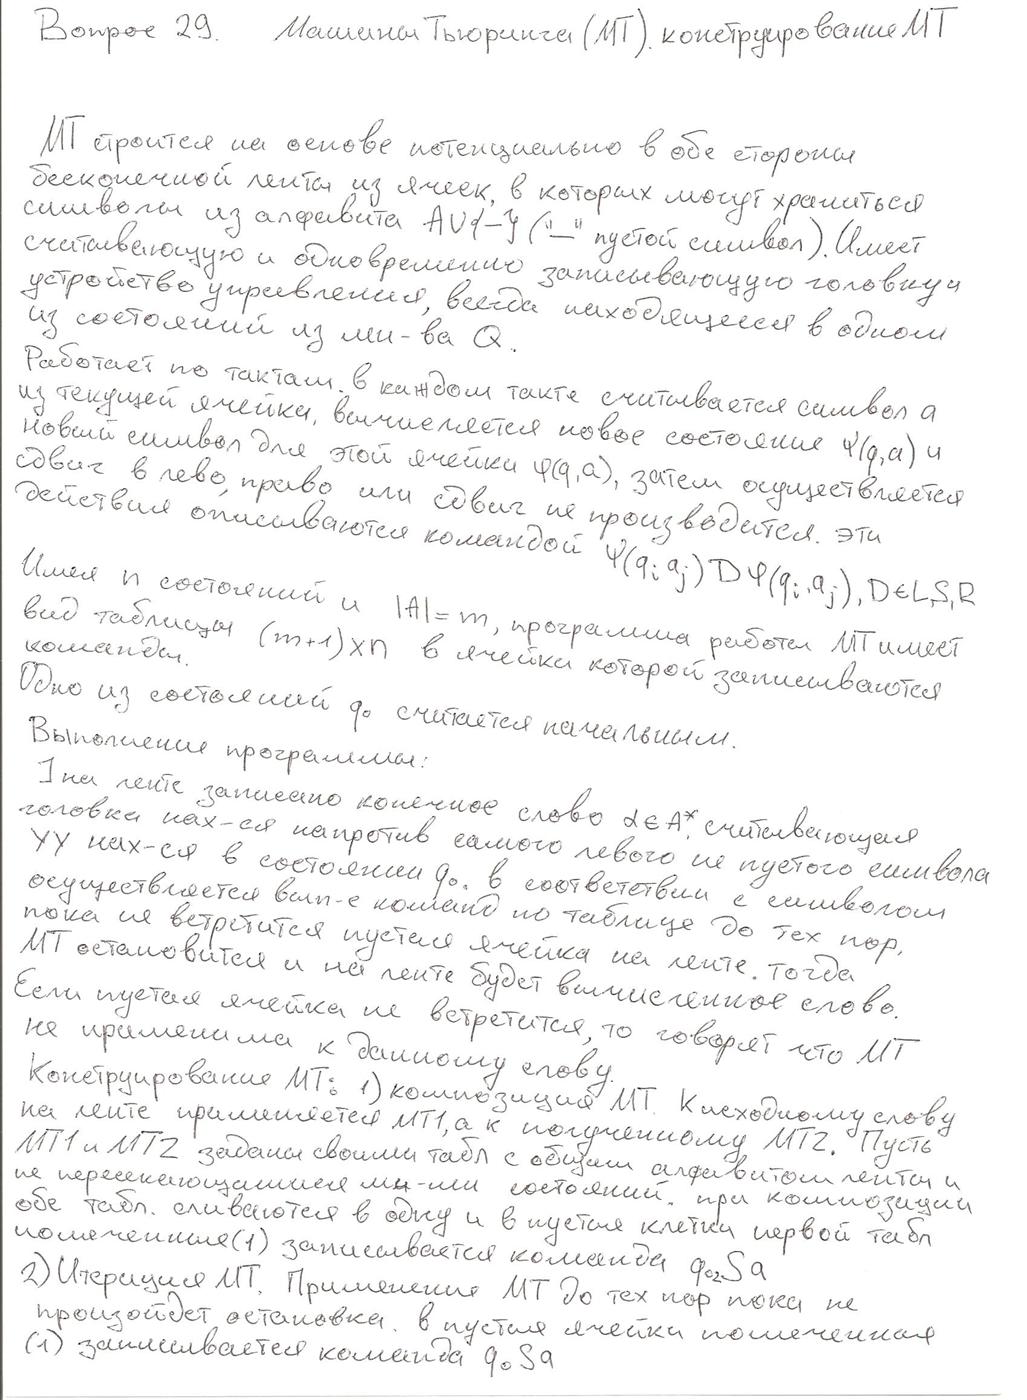 Вопрос 29. Машины Тьюринга (МТ). конструирование МТ
МТ строится на основе потенциально в обе стороны
бесконечной ленты из ячеек, в которых могут храниться
символы из алфавита A∪{–} ("—" пустой символ). Имеет
считывающую и одновременно записывающую головку и
устройство управления, всегда находящееся в одном
из состояний из мн-ва Q.
Работает по тактам. в каждом такте считывается символ a
из текущей ячейки, вычисляется новое состояние Ψ(q,a) и
новый символ для этой ячейки φ(q,a), затем осуществляется
сдвиг в лево, право или сдвиг не производится. эти
действия описываются командой Ψ(qᵢ aⱼ) D φ(qᵢ, aⱼ), D∈L,S,R
Имея n состояний и |A|=m, программа работы МТ имеет
вид таблицы (m+1)×n в ячейки которой записываются
команды.
Одно из состояний q₀ считается начальным.
Выполнение программы:
] на ленте записано конечное слово α∈A*. считывающая
головка нах-ся напротив самого левого не пустого символа
УУ нах-ся в состоянии q₀. в соответствии с символом
осуществляется вып-е команд по таблице до тех пор,
пока не встретится пустая ячейка на ленте. тогда
МТ остановится и на ленте будет вычисленное слово.
Если пустая ячейка не встретится, то говорят что МТ
не применима к данному слову.
Конструирование МТ: 1) композиция МТ. К исходному слову
на ленте применяется МТ1, а к полученному МТ2. Пусть
МТ1 и МТ2 заданы своими табл с общим алфавитом ленты и
не пересекающимися мн-ми состояний. при композиции
обе табл. сливаются в одну и в пустые клетки первой табл
помеченные (1) записывается команда q₀₂Sa
2) Итерация МТ. Применение МТ до тех пор пока не
произойдет остановка. в пустые ячейки помеченная
(1) записывается команда q₀Sa